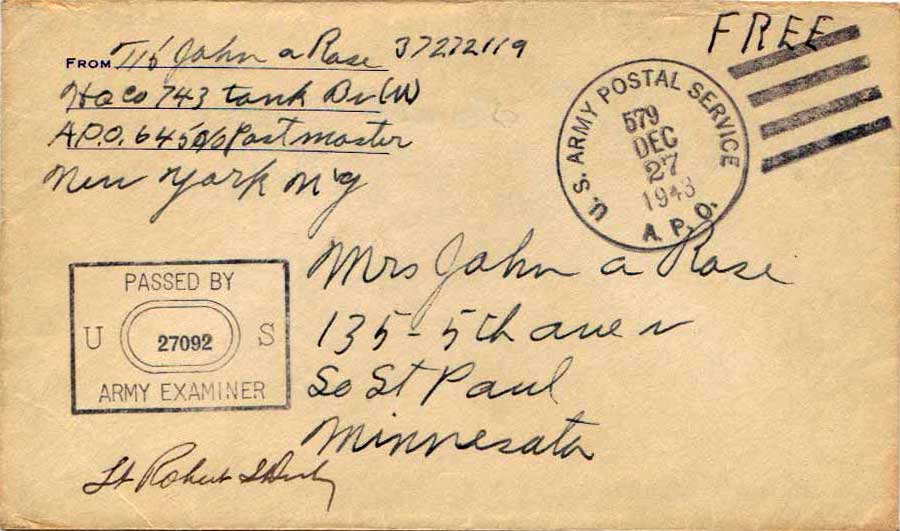 FREE
FROM T/5 John a Rose 37272119
Hq Co 743 tank Bn (M)
A.P.O. 645 c/o Postmaster
New York NY
U. S. ARMY POSTAL SERVICE
579
DEC
27
1943
A. P. O.
Mrs John a Rose
135 - 5th ave n
So St Paul
Minnesota
PASSED BY
U 27092 S
ARMY EXAMINER
Lt Robert